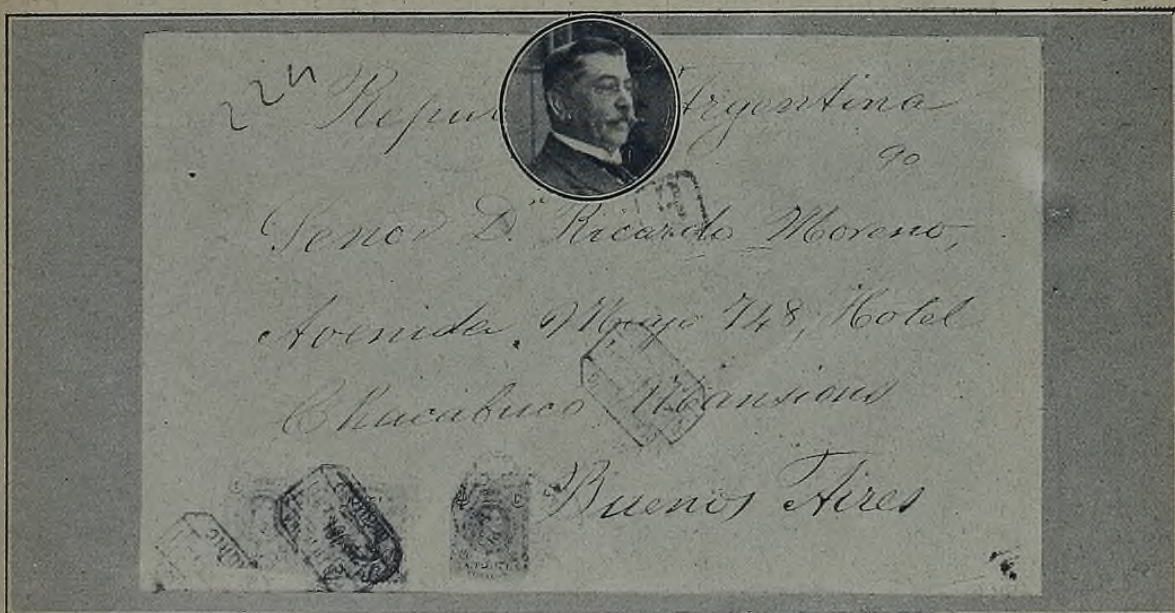 224
Repu Argentina
90
Senor D.n Ricardo Moreno,
Avenida Mayo 748, Hotel
Chacabuco Mansions
Buenos Aires